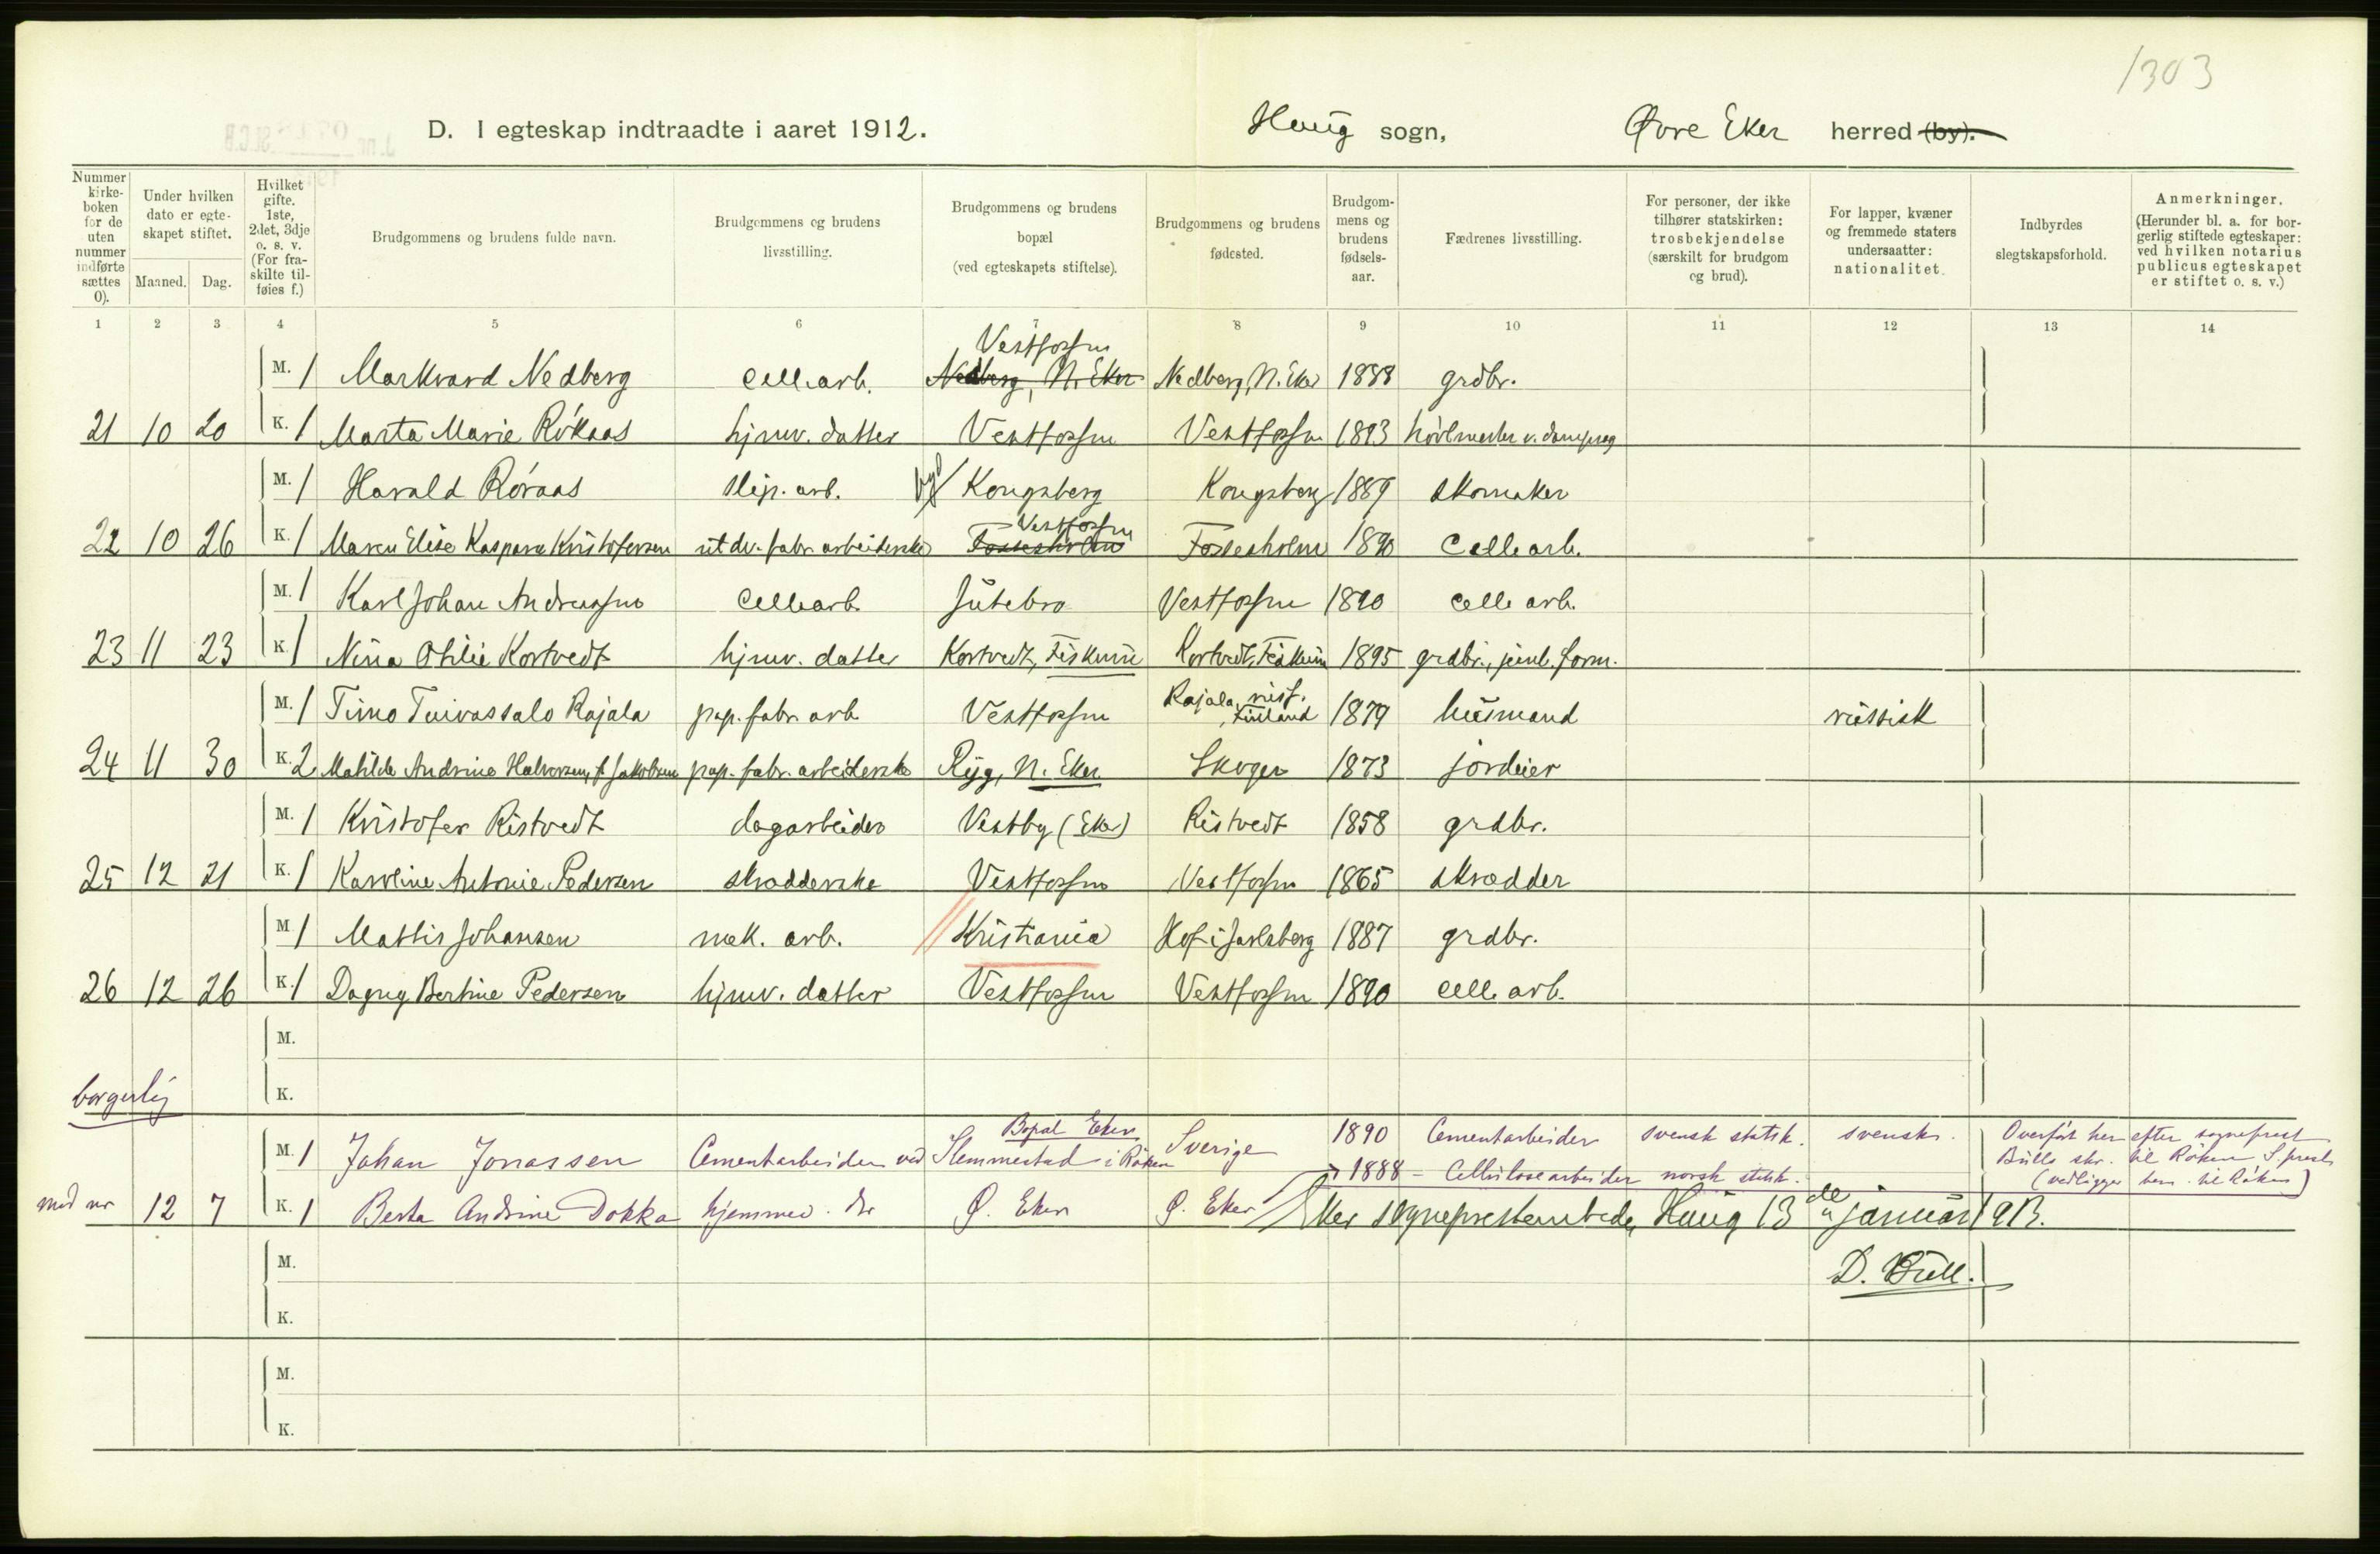 1303
D. I egteskap indtraadte i aaret 1912. Haug sogn, Øvre Eker herred (by).
Nummer kirkeboken for de uten nummer indførte sættes 0). Under hvilken dato er egteskapet stiftet. Maaned. Dag. Hvilket gifte. 1ste, 2det, 3dje o. s. v. (For fraskilte tilføies f.) Brudgommens og brudens fulde navn. Brudgommens og brudens livsstilling. Brudgommens og brudens bopæl (ved egteskapets stiftelse). Brudgommens og brudens fødested. Brudgommens og brudens fødselsaar. Fædrenes livsstilling. For personer, der ikke tilhører statskirken: trosbekjendelse (særskilt for brudgom og brud). For lapper, kvæner og fremmede staters undersaatter: nationalitet. Indbyrdes slegtskapsforhold. Anmerkninger. (Herunder bl. a. for borgerlig stiftede egteskaper: ved hvilken notarius publicus egteskapet er stiftet o. s. v.)
1 2 3 4 5 6 7 8 9 10 11 12 13 14
Vestfossen
M. 1 Markvard Nedberg cell.arb. Nedberg, N. Eker Nedberg, N. Eker 1888 grdbr.
21 10 20 K. 1 Marta Marie Rökaas hjmv. datter Vestfossen Vestfossen 1893
M. 1 Harald Röraas slip. arb. Kongsberg Kongsberg 1889 skomaker
Vestfossen
22 10 26 K. 1 Maren Elise Kaspara Kristofersen utdv. fabr. arbeiderske Fossesholm Fossesholm 1890 Celle arb.
M. 1 Karl Johan Andreassen Cellearb. Sütebro Vestfossen 1890 celle arb.
23 11 23 K. 1 Nina Otilie Kortvedt hjmv. datter Kortvedt, Fiskum Kortvedt, Fiskum 1895 grdbr., form.
M. 1 Timo Tuivassalo Rajala pap. fabr. arb. Vestfossen Rajala, russ. Finland 1879 husmand russisk
24 11 30 K. 2 Matilde Andrine Halvorsen, f. Jakobsen pap. fabr. arbeiderske Ryg, N. Eker Skoger 1873 jordeier
M. 1 Kristofer Ristvedt dagarbeider Vestby (Eker) Ristvedt 1858 grdbr.
25 12 21 K. 1 Karoline Antonie Pedersen skrædderske Vestfossen Vestfossen 1865 skrædder
M. 1 Mattis Johansen mek. arb. Kristiania Hof i Jarlsberg 1887 grdbr.
26 12 26 K. 1 Dagny Bertine Pedersen hjmv. datter Vestfossen Vestfossen 1890 cell. arb.
M.
borgerlig K.
Bopæl Eker
M. 1 Johan Jonassen Cementarbeider ved Slemmestad i Röken Sverige 1890 Cementarbeider svensk statsk. svensk. Overfört her efter sogneprest
1888 – Cellulosearbeider norsk statsk. Bulls skr. til Röken S.prest
(vedligger ber. til Röken)
med nr 12 7 K. 1 Berta Andrine Dokka hjemmev. dtr Ø. Eker Ø. Eker Eker sogneprestembede, Haug 13de januar 1913.
M. D. Bull.
K.
M.
K.